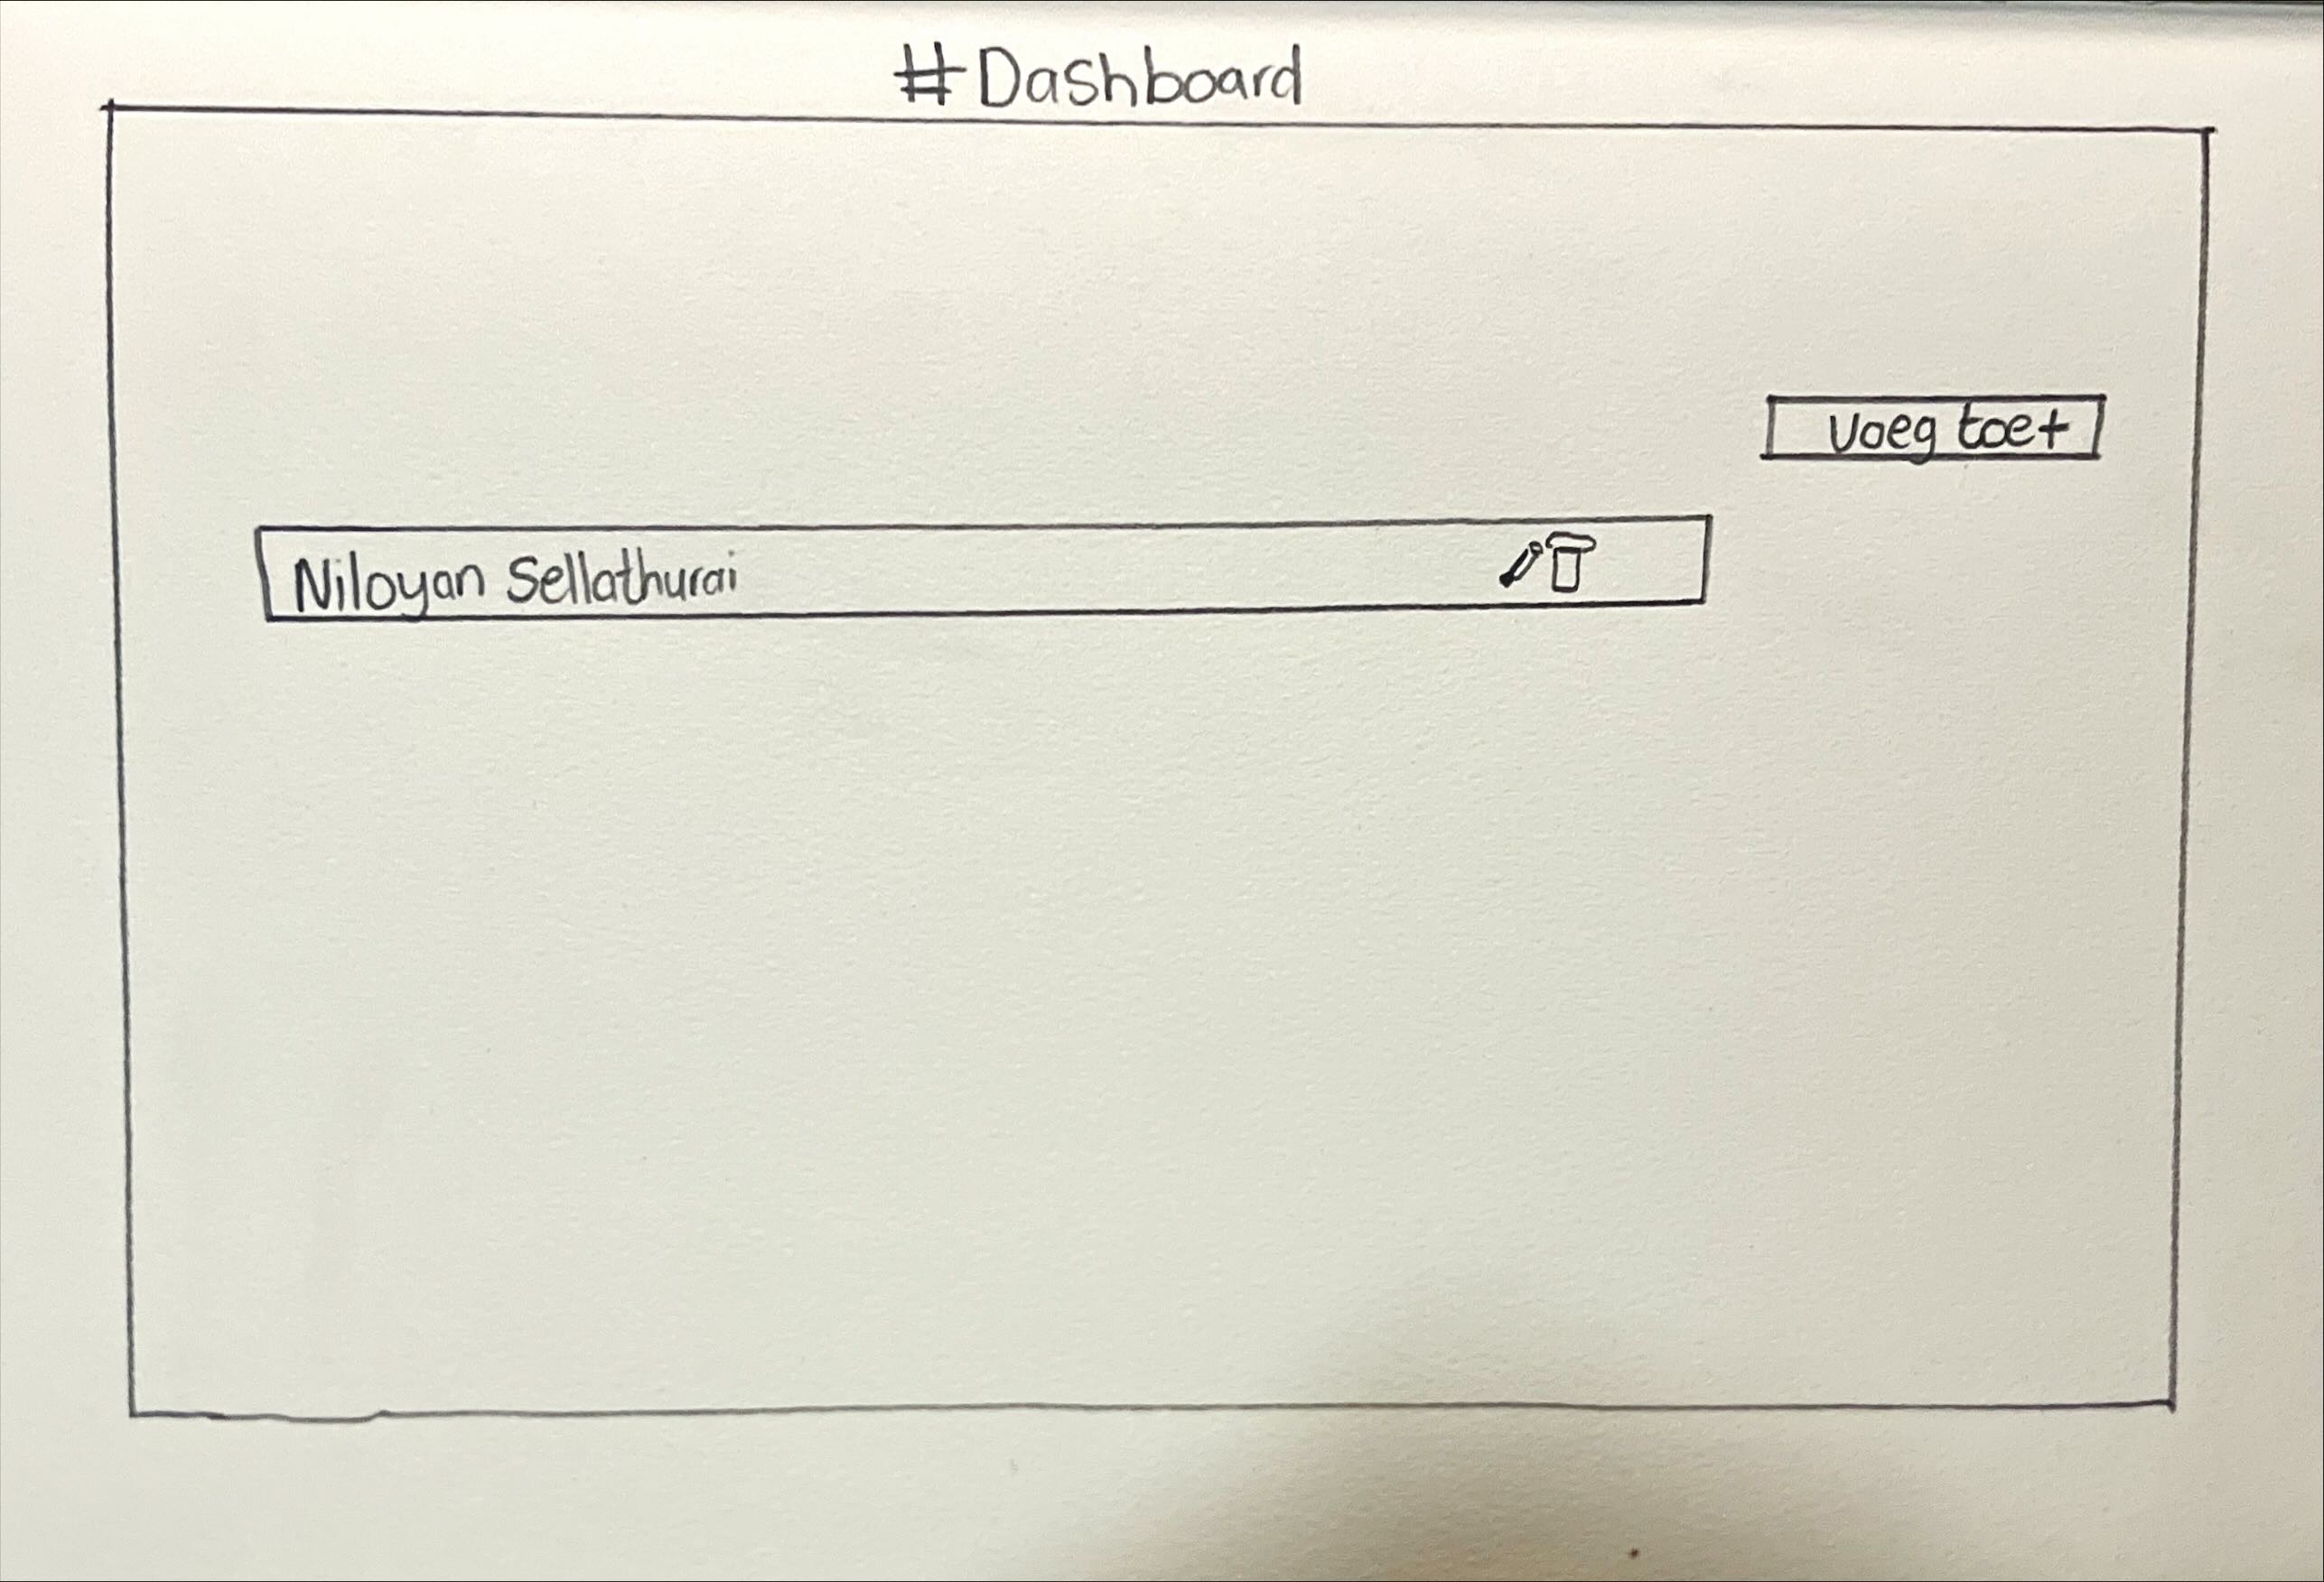 #Dashboard
Voeg toe+
Niloyan Sellathurai